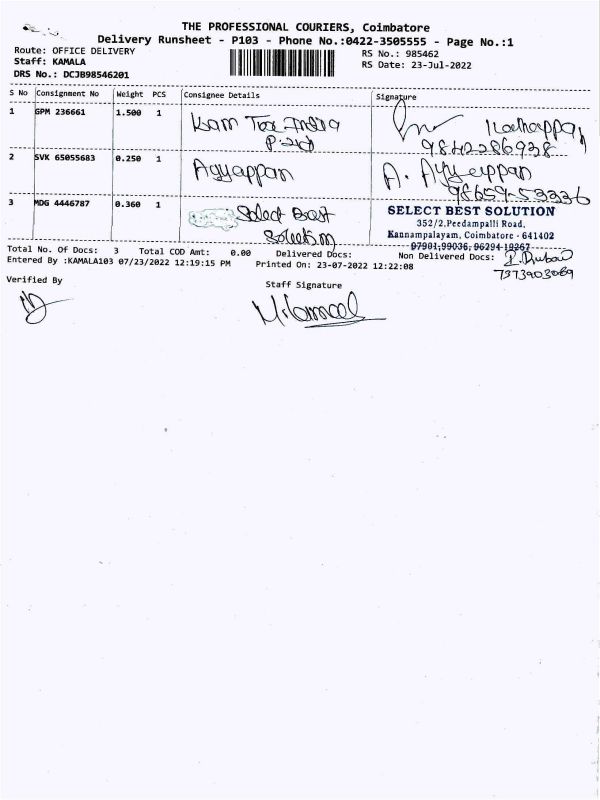 THE PROFESSIONAL COURIERS, Coimbatore
Delivery Runsheet - P103 - Phone No.:0422-3505555 - Page No.:1
Route: OFFICE DELIVERY
RS No.: 985462
Staff: KAMALA
RS Date: 23-Jul-2022
DRS No.: DCJB98546201
S No Consignment No Weight PCS Consignee Details Signature
1 GPM 236661 1.500 1 Kam Tex India Kathappan
P. Ltd 9842286938
2 SVK 65055683 0.250 1 Ayyappan A. Ayyappan
98659-53336
3 MDG 4446787 0.360 1 Select Best SELECT BEST SOLUTION
352/2,Peedampalli Road,
Solution Kannampalayam, Coimbatore - 641402
97901,99036, 96294 19267
Total No. Of Docs: 3 Total COD Amt: 0.00 Delivered Docs: Non Delivered Docs:
Entered By :KAMALA103 07/23/2022 12:19:15 PM Printed On: 23-07-2022 12:22:08
7373903069
Verified By
Staff Signature